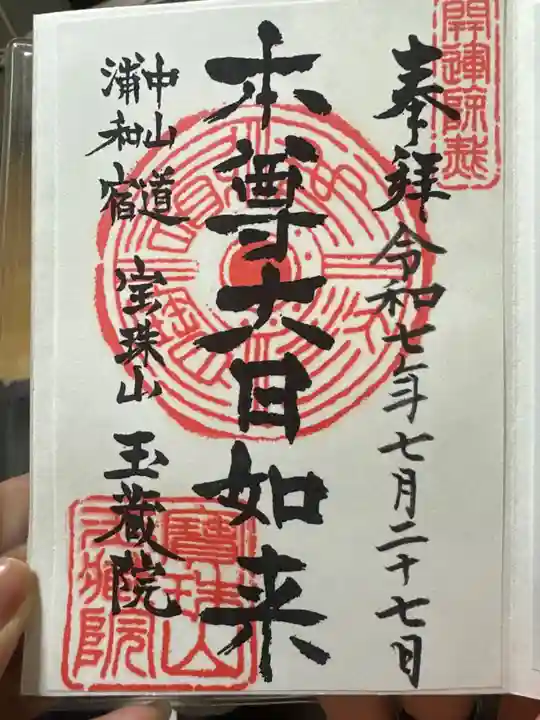 奉拝
令和七年七月二十七日
本尊大日如来
中山道
浦和宿
宝珠山 玉蔵院
寶珠山